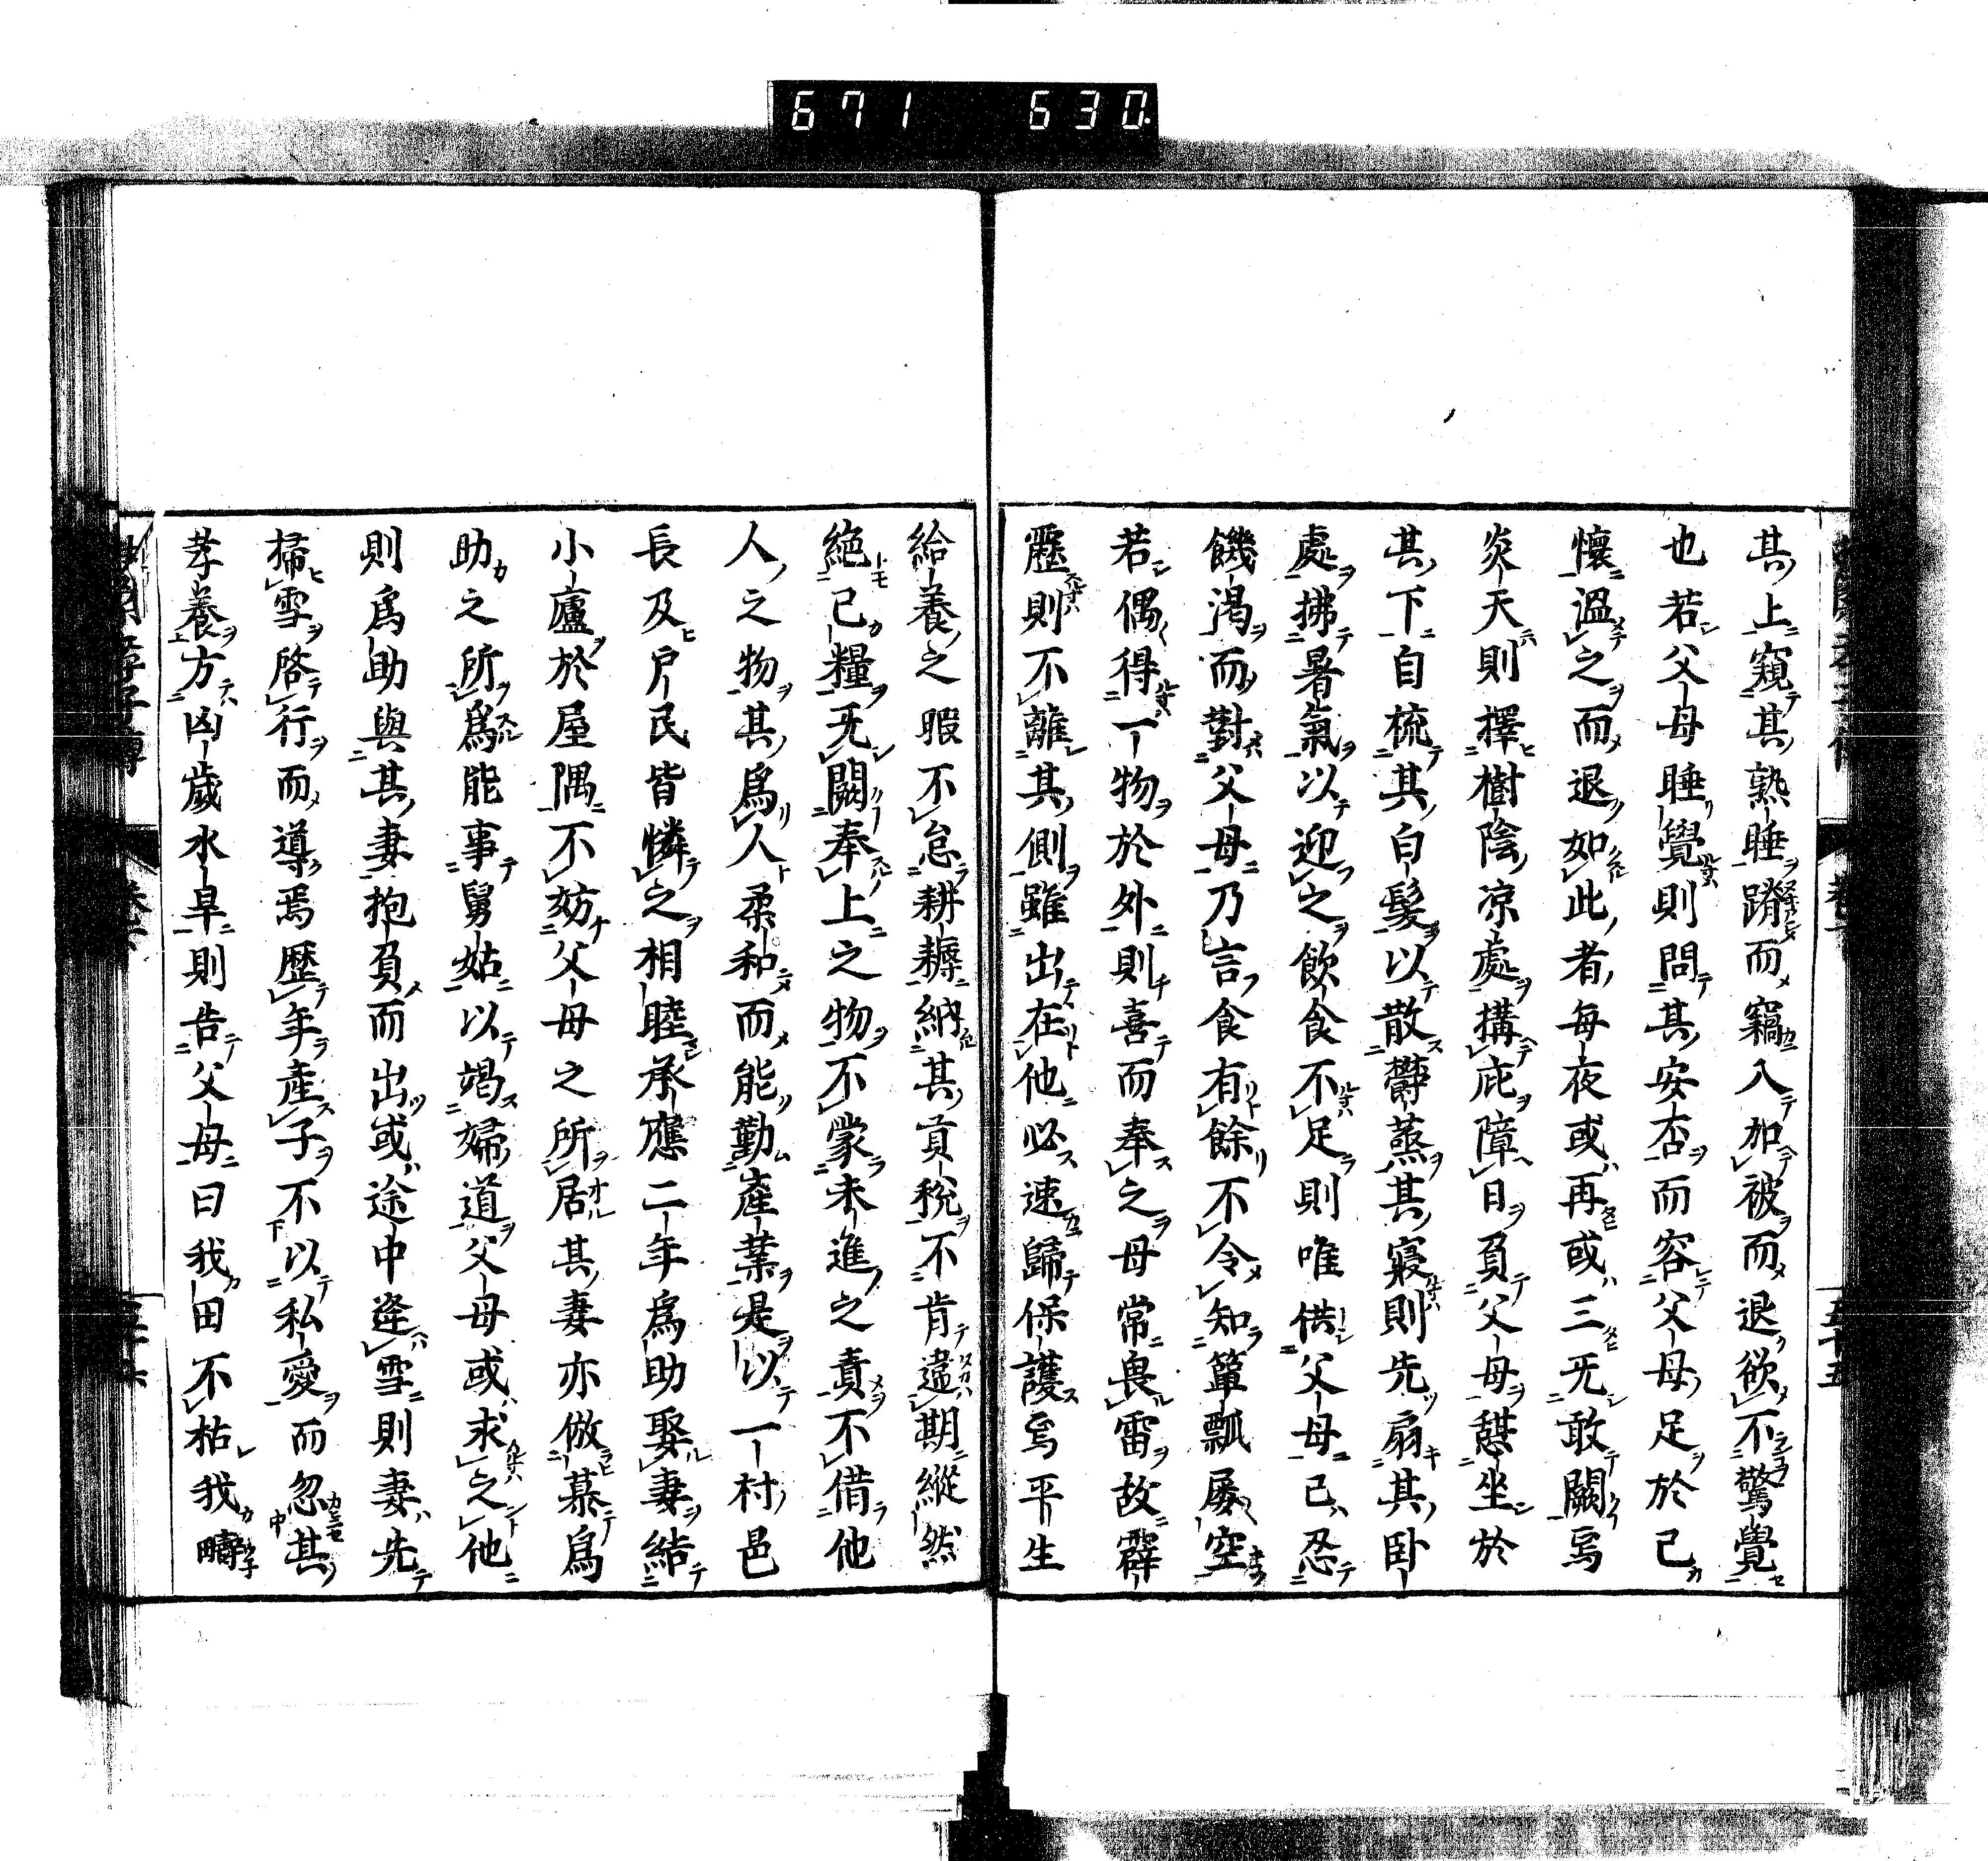 671 630
其上窺其熟睡蹐而竊入加被而退欲不驚覺
也若父母睡覺則問其安否而容父母足於己
懷溫之而退如此者每夜或再或三无敢闕焉
炎天則擇樹陰凉處搆庇障日負父母憇坐於
其下自梳其白髮以散欝蒸其寢則先扇其臥
處拂暑氣以迎之飲食不足則唯供父母己忍
饑渴而對父母乃言食有餘不令知簞瓢屡空
若偶得一物於外則喜而奉之母常畏雷故霹
靂則不離其側雖出在他必速歸保護焉平生
給養之暇不怠耕耨納其貢稅不肯違期縱然
絕己糧无闕奉上之物不蒙未進之責不借他
人之物其爲人柔和而能勤產業是以一村邑
長及戶民皆憐之相睦承應二年爲助娶妻結
小廬於屋隅不妨父母之所居其妻亦倣慕爲
助之所爲能事舅姑以竭婦道父母或求之他
則爲助與其妻抱負而出或途中逢雪則妻先
掃雪啓行而導焉歷年產子不以私愛而忽其
孝養方凶歲水旱則告父母曰我田不枯我疇